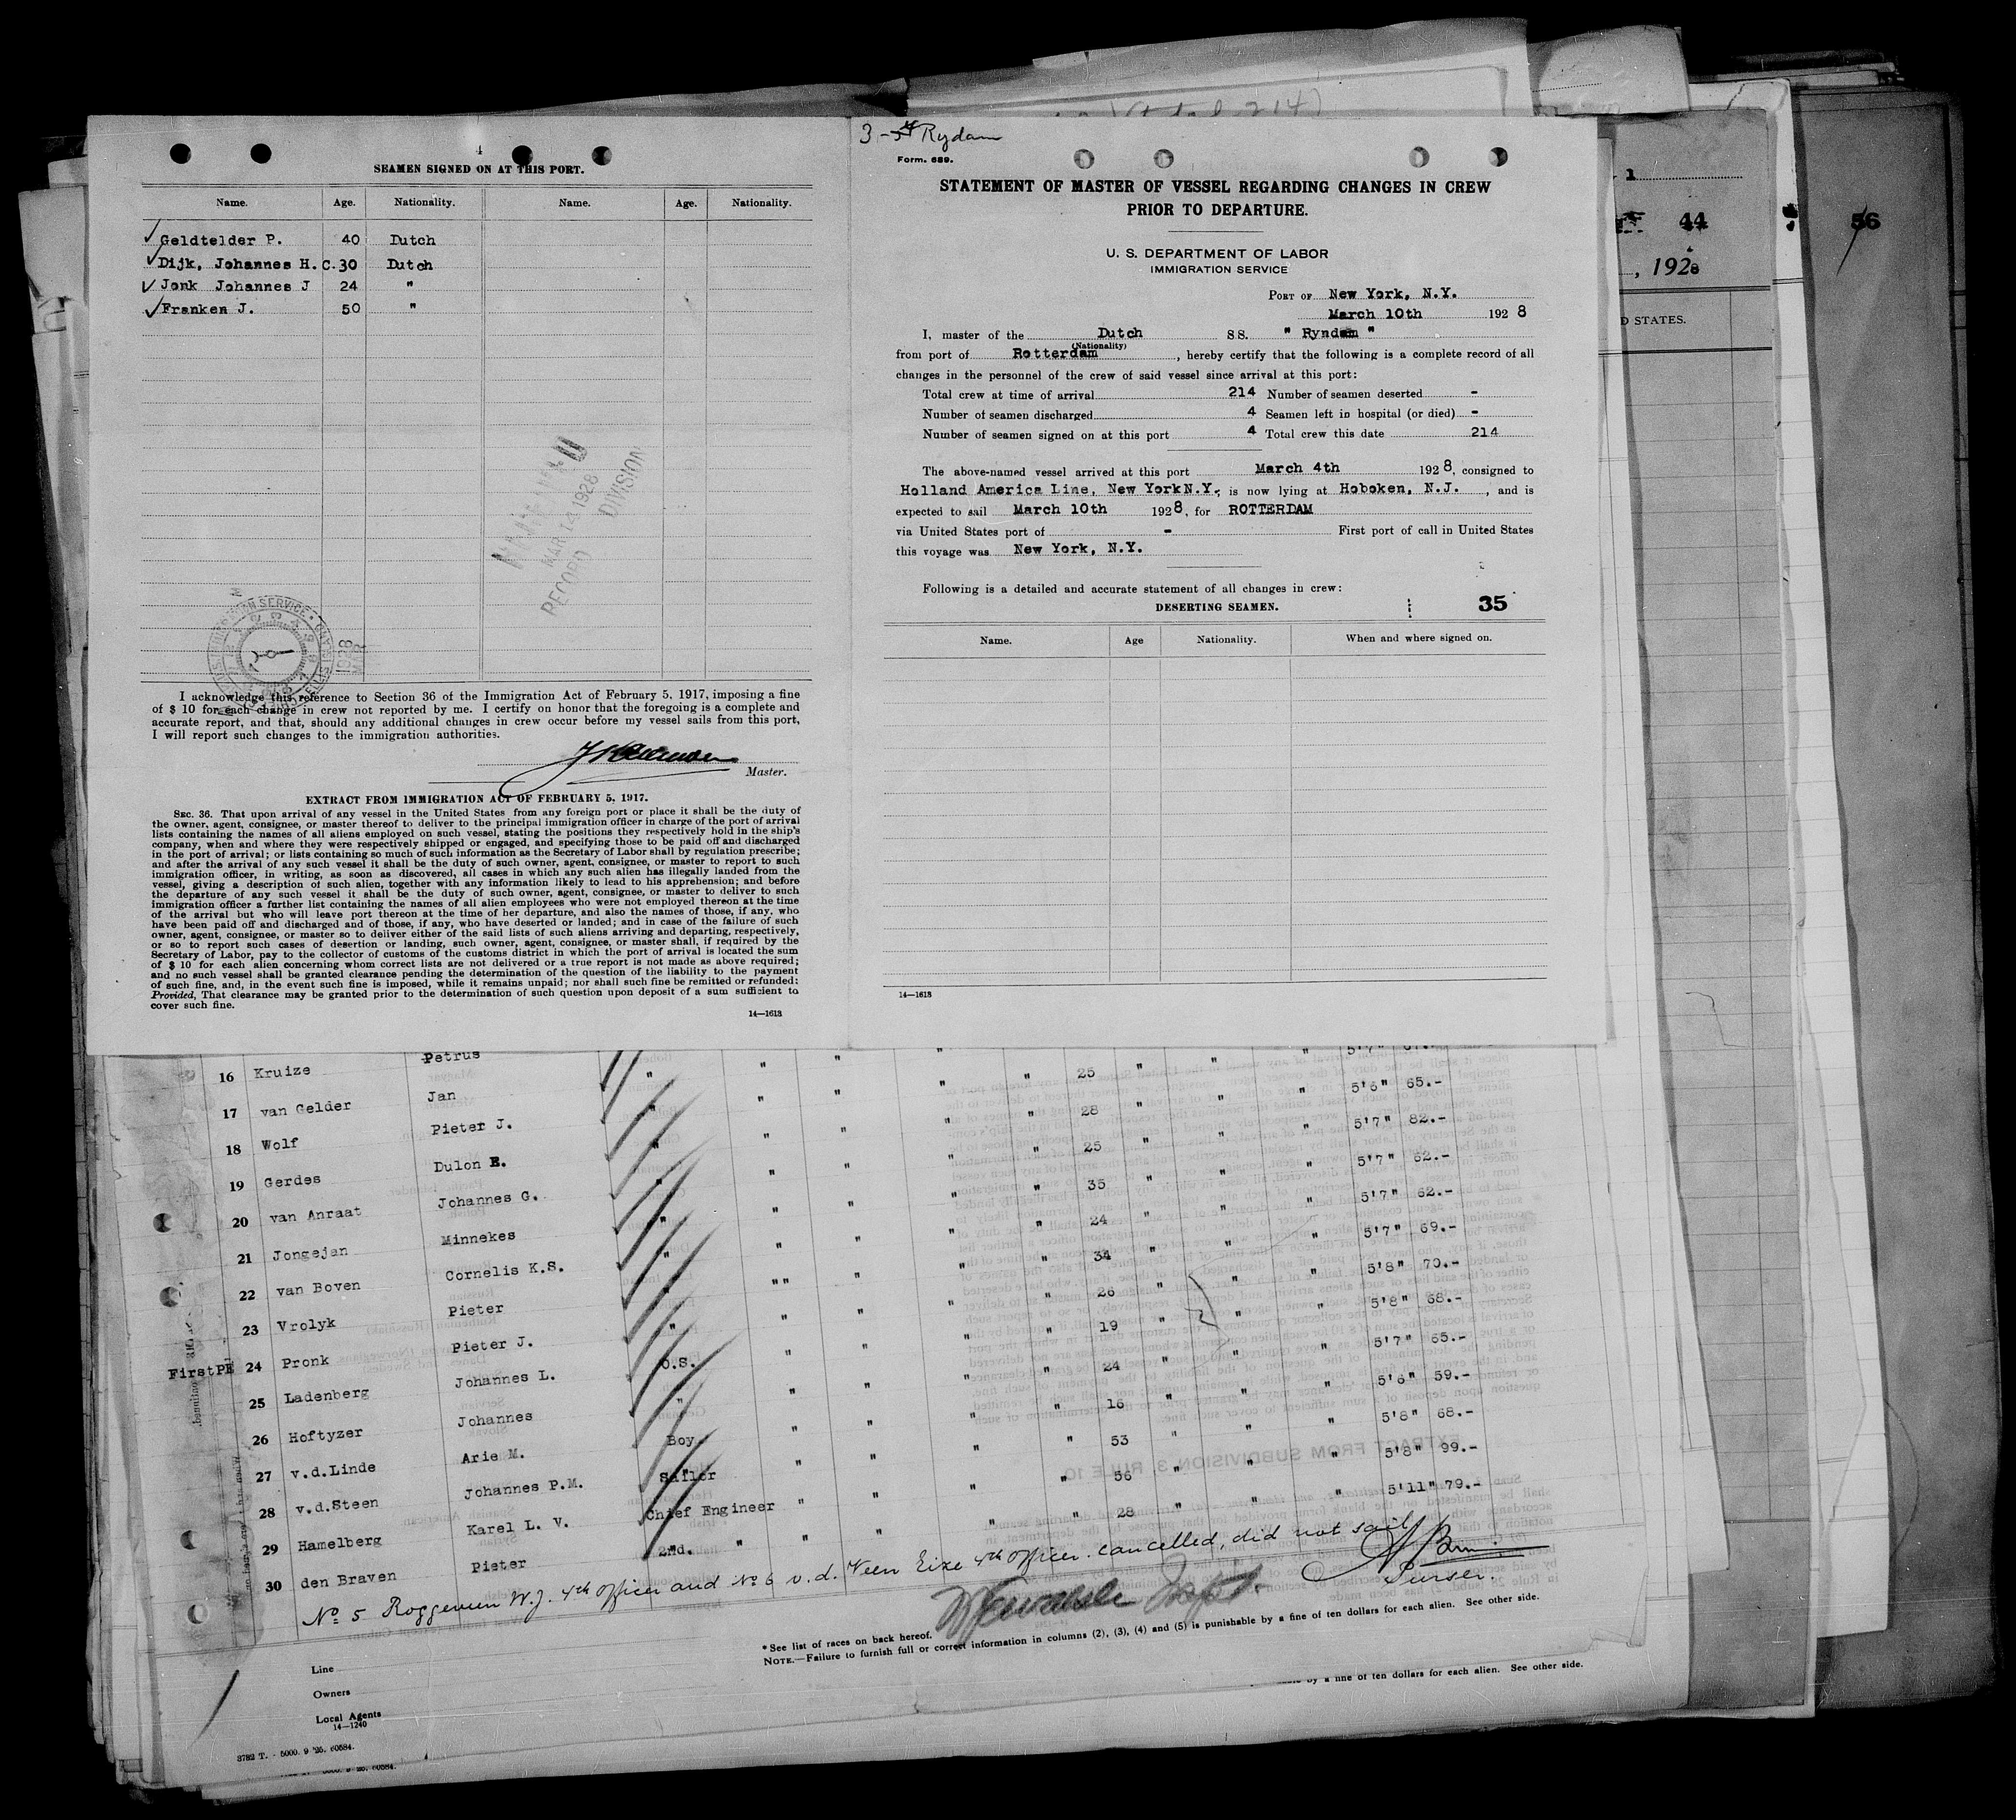 4
SEAMEN SIGNED ON AT THIS PORT.
Name. Age. Nationality. Name. Age. Nationality.
Geldtelder P. 40 Dutch
Dijk, Johannes H.C. 30 Dutch
Jonk Johannes J 24 "
Franken J. 50 "
MAR 14 1928
RECORD DIVISION
I acknowledge this reference to Section 36 of the Immigration Act of February 5, 1917, imposing a fine
of $ 10 for each change in crew not reported by me. I certify on honor that the foregoing is a complete and
accurate report, and that, should any additional changes in crew occur before my vessel sails from this port,
I will report such changes to the immigration authorities.
Master.
EXTRACT FROM IMMIGRATION ACT OF FEBRUARY 5, 1917.
SEC. 36. That upon arrival of any vessel in the United States from any foreign port or place it shall be the duty of
the owner, agent, consignee, or master thereof to deliver to the principal immigration officer in charge of the port of arrival
lists containing the names of all aliens employed on such vessel, stating the positions they respectively hold in the ship's
company, when and where they were respectively shipped or engaged, and specifying those to be paid off and discharged
in the port of arrival; or lists containing so much of such information as the Secretary of Labor shall by regulation prescribe;
and after the arrival of any such vessel it shall be the duty of such owner, agent, consignee, or master to report to such
immigration officer, in writing, as soon as discovered, all cases in which any such alien has illegally landed from the
vessel, giving a description of such alien, together with any information likely to lead to his apprehension; and before
the departure of any such vessel it shall be the duty of such owner, agent, consignee, or master to deliver to such
immigration officer a further list containing the names of all alien employees who were not employed thereon at the time
of the arrival but who will leave port thereon at the time of her departure, and also the names of those, if any, who
have been paid off and discharged and of those, if any, who have deserted or landed; and in case of the failure of such
owner, agent, consignee, or master so to deliver either of the said lists of such aliens arriving and departing, respectively,
or so to report such cases of desertion or landing, such owner, agent, consignee, or master shall, if required by the
Secretary of Labor, pay to the collector of customs of the customs district in which the port of arrival is located the sum
of $ 10 for each alien concerning whom correct lists are not delivered or a true report is not made as above required;
and no such vessel shall be granted clearance pending the determination of the question of the liability to the payment
of such fine, and, in the event such fine is imposed, while it remains unpaid; nor shall such fine be remitted or refunded:
Provided, That clearance may be granted prior to the determination of such question upon deposit of a sum sufficient to
cover such fine.
14—1618
Rydam
Form. 689.
STATEMENT OF MASTER OF VESSEL REGARDING CHANGES IN CREW
PRIOR TO DEPARTURE.
U. S. DEPARTMENT OF LABOR
IMMIGRATION SERVICE
PORT OF New York, N.Y.
March 10th 1928
I, master of the Dutch SS. " Ryndam "
(Nationality)
from port of Rotterdam, hereby certify that the following is a complete record of all
changes in the personnel of the crew of said vessel since arrival at this port:
Total crew at time of arrival 214 Number of seamen deserted -
Number of seamen discharged 4 Seamen left in hospital (or died) -
Number of seamen signed on at this port 4 Total crew this date 214
The above-named vessel arrived at this port March 4th 1928, consigned to
Holland America Line, New York N.Y. ; is now lying at Hoboken, N.J. , and is
expected to sail March 10th 1928, for ROTTERDAM
via United States port of - First port of call in United States
this voyage was New York, N.Y.
Following is a detailed and accurate statement of all changes in crew:
DESERTING SEAMEN. 35
Name. Age Nationality. When and where signed on.
14—1618
1
44
, 1928
D STATES.
56
16 Kruize Petrus " " " " " 25 " " "
17 van Gelder Jan " " " " " 28 " " " 5'6" 65.-
18 Wolf Pieter J. " " " " " 25 " " " 5'7" 82.-
19 Gerdes Dulon E. " " " " " 35 " " " 5'7" 62.-
20 van Anraat Johannes G. " " " " " 24 " " " 5'7" 62.-
21 Jongejan Minnekes " " " " " 34 " " " 5'7" 69.-
22 van Boven Cornelis K.S. " "" " " " 26 " " " 5'8" 70.-
23 Vrolyk Pieter " " " " " 19 " " " 5'8" 68.-
First PE 24 Pronk Pieter J. O.S. " " " " 24 " " " 5'7" 65.-
25 Ladenberg Johannes L. " " " " " 16 " " " 5'6" 59.-
26 Hoftyzer Johannes Boy " " " " 53 " " " 5'8" 68.-
27 v.d.Linde Arie M. Sailor " " " " 56 " " " 5'8" 99.-
28 v.d.Steen Johannes P.M. Chief Engineer " " " " 28 " " " 5'11" 79.-
29 Hamelberg Karel L. V. 2nd. " " "
30 den Braven Pieter
No 5 Roggeveen W.J. 4th officer and No 6 v.d. Veen Eize 4th officer. cancelled, did not sail
Purser.
*See list of races on back hereof.
NOTE.—Failure to furnish full or correct information in columns (2), (3), (4) and (5) is punishable by a fine of ten dollars for each alien. See other side.
by a fine of ten dollars for each alien. See other side.
Line
Owners
Local Agents
14—1240
3782 T. - 5000. 9 '25. 60584.